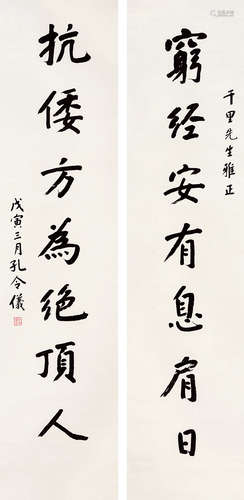 千里先生雅正
窮经安有息肩日
抗倭方為绝頂人
戊寅三月孔令儀